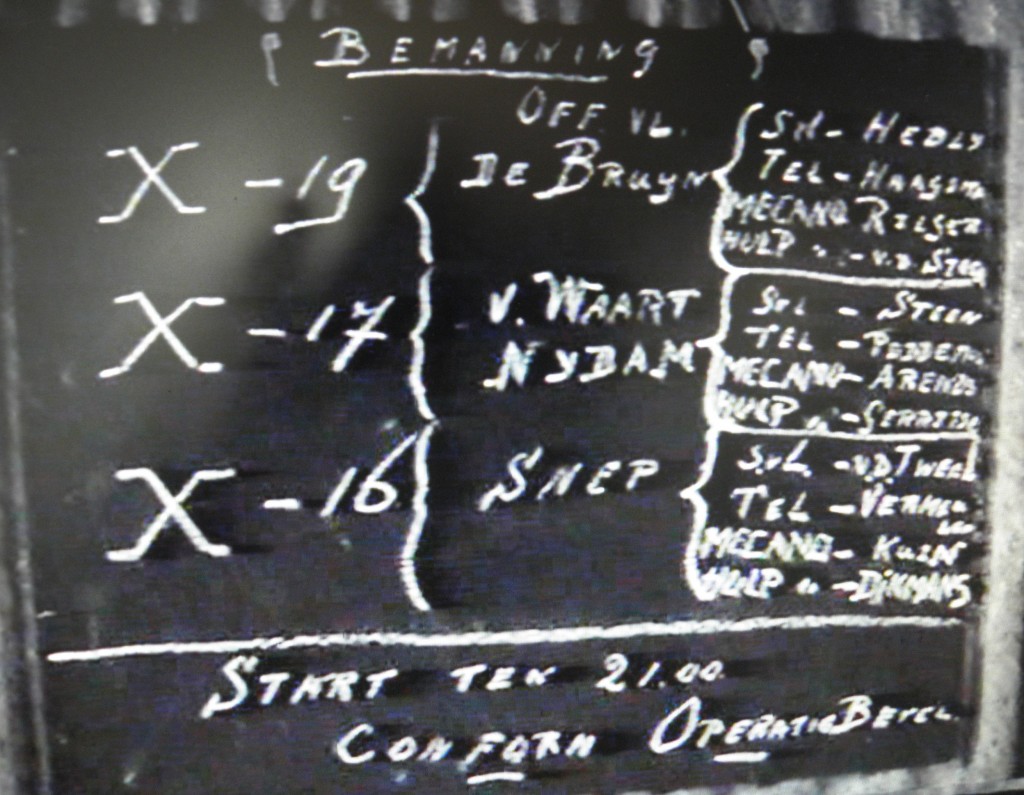 BEMANNING
OFF. VL.
X-19 DE BRUYN
SM- HEDLY
TEL-HAAGSMA
MECANO
HULP " - V.D. STEG
X-17 V. WAART
NYDAM
SVL - STEEN
TEL -
MECANO- ARENDS
HULP " -
X-16 SNEP
S.VL. -V.D. TWEEL
TEL -
MECANO- KUIN
HULP " -DIKMANS
START TEN 21.00.
CONFORM OPERATIEBEVEL.